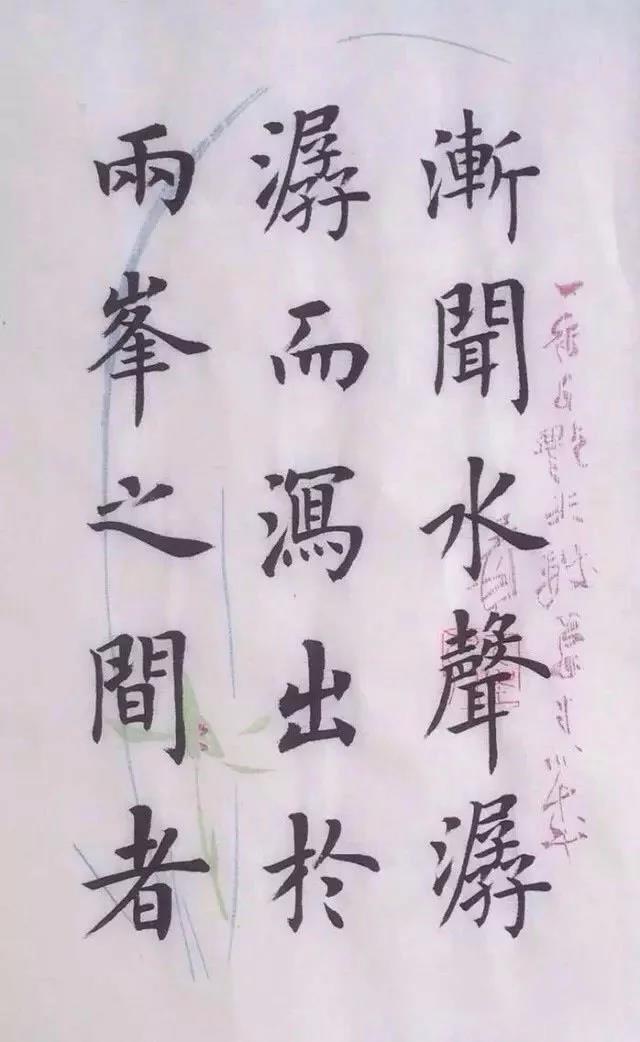 漸聞水聲潺
潺而瀉出於
兩峯之間者